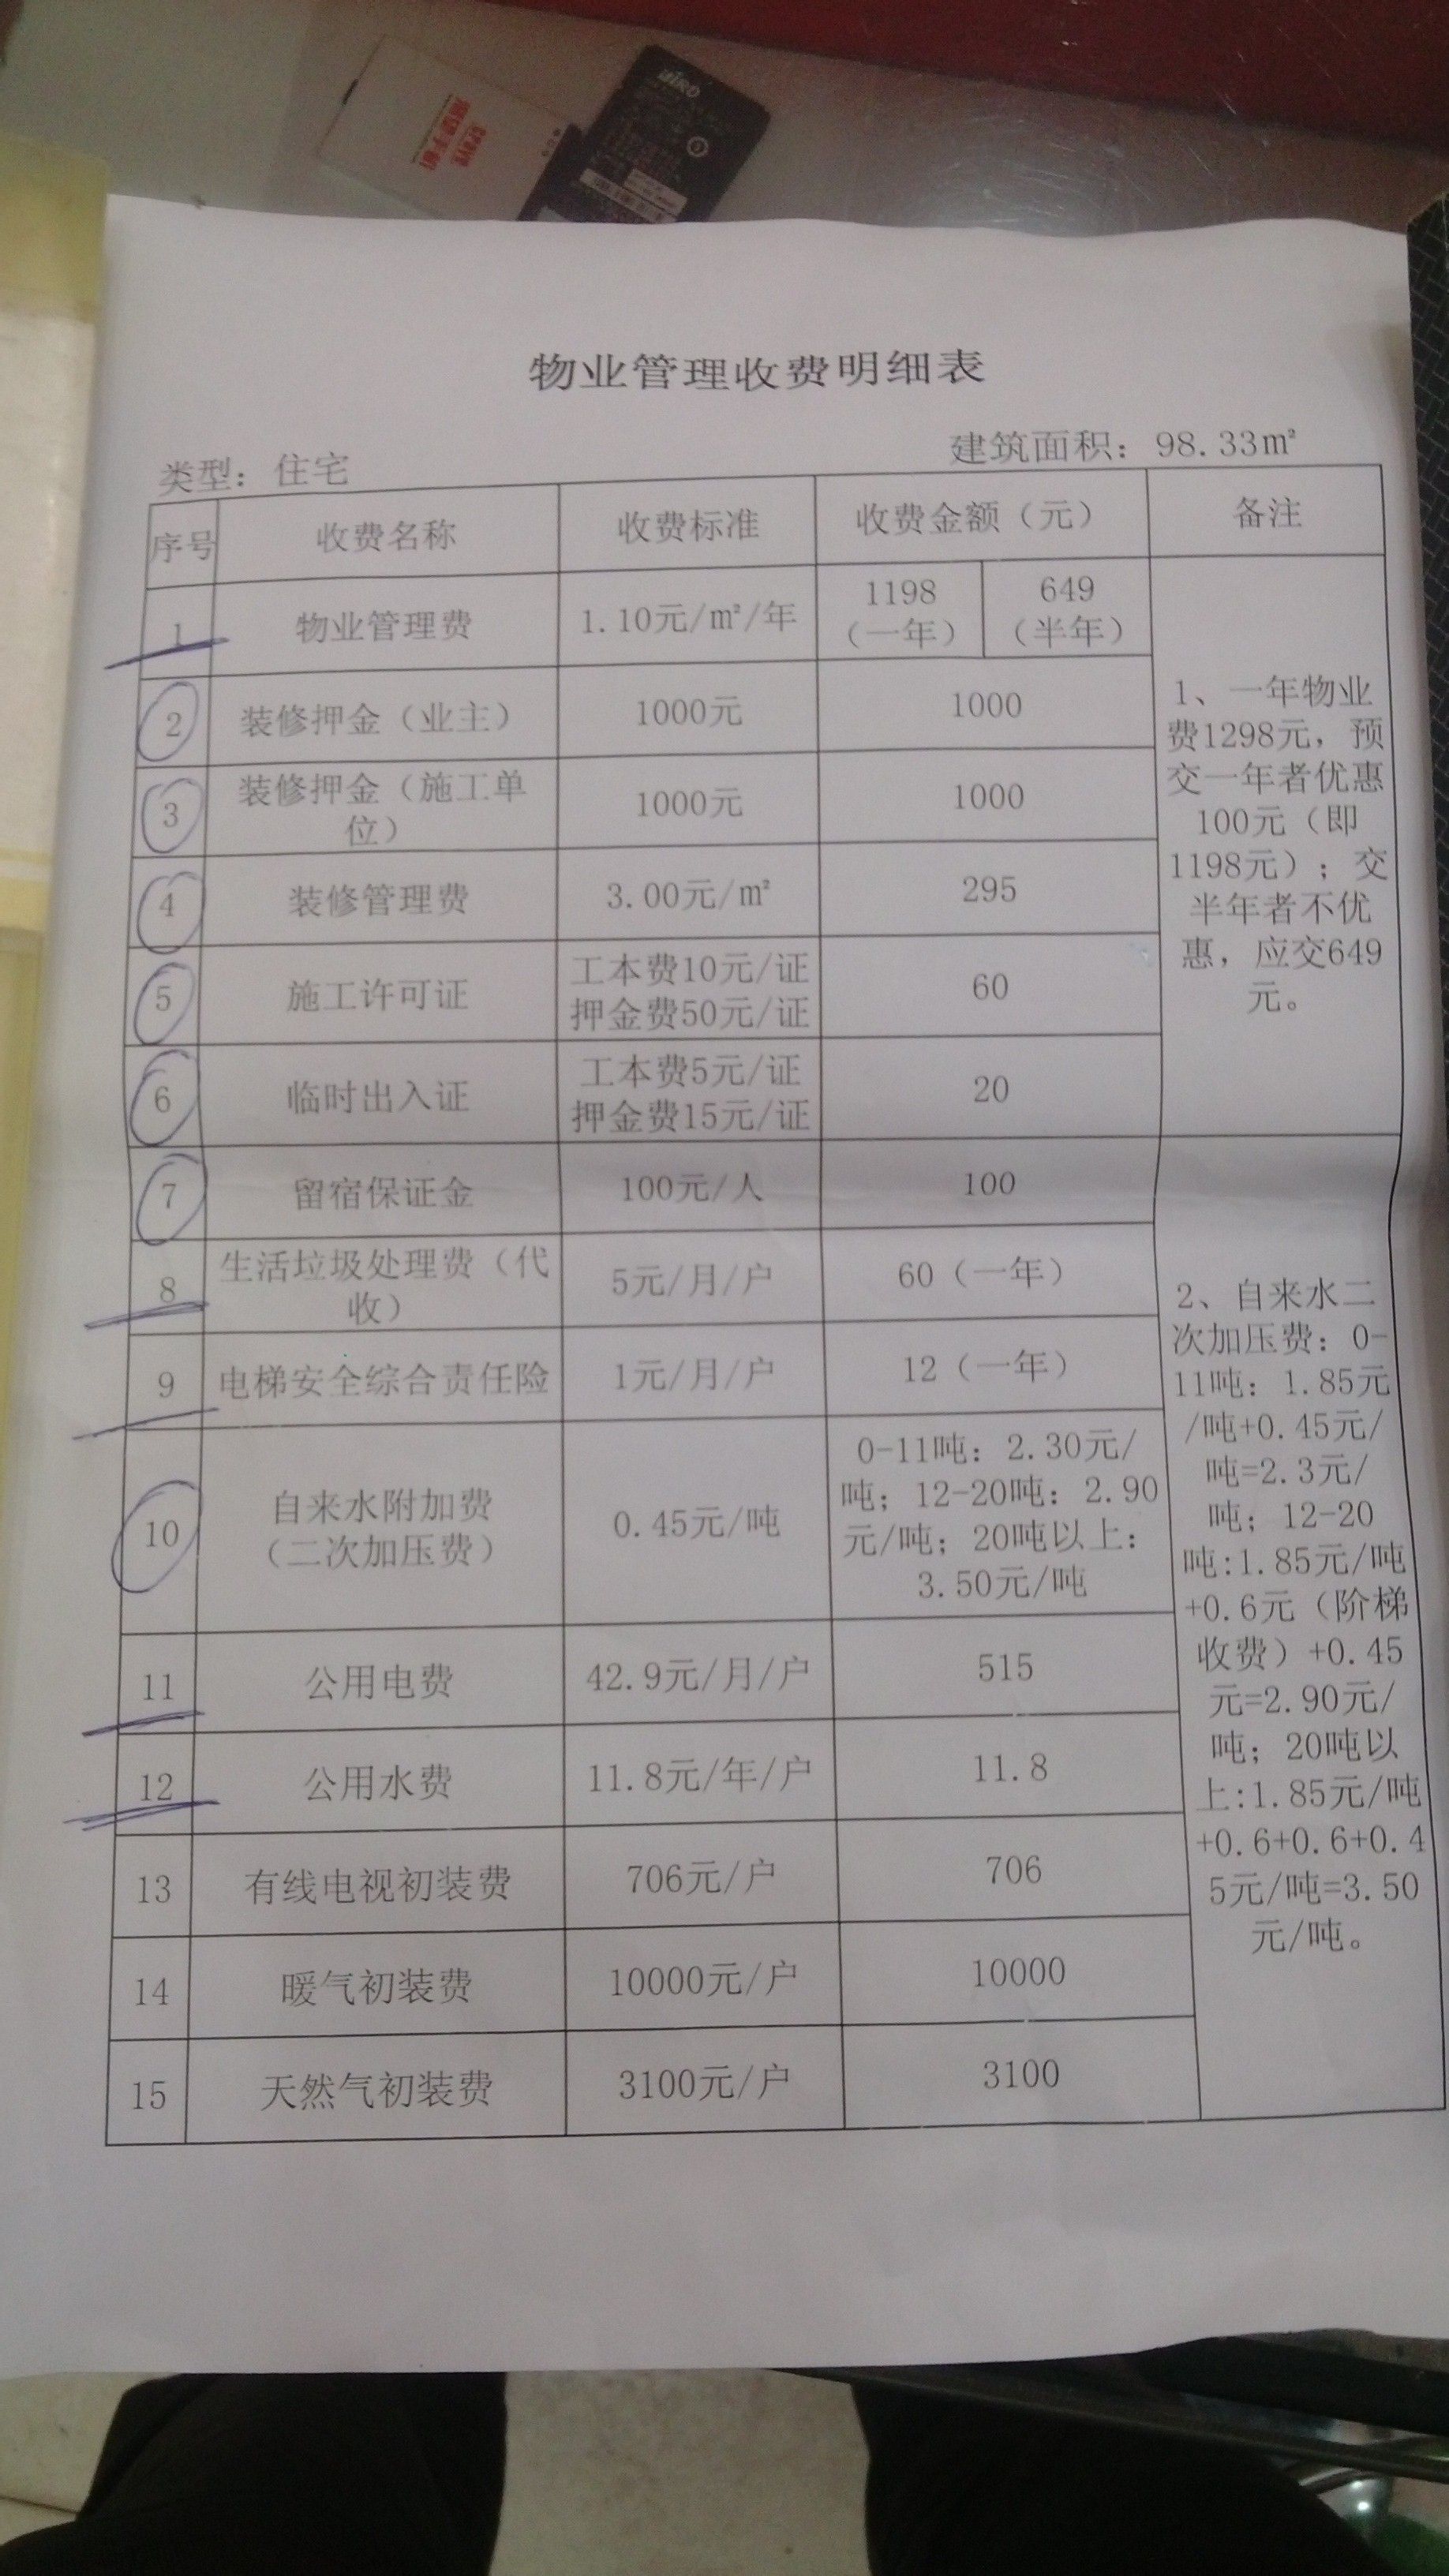 物业管理收费明细表
类型：住宅
建筑面积：98.33㎡
序号 收费名称 收费标准 收费金额（元） 备注
1 物业管理费 1.10元/㎡/年 1198（一年） 649（半年）
2 装修押金（业主） 1000元 1000
3 装修押金（施工单位） 1000元 1000
4 装修管理费 3.00元/㎡ 295
5 施工许可证 工本费10元/证 押金费50元/证 60
6 临时出入证 工本费5元/证 押金费15元/证 20
1、一年物业
费1298元，预
交一年者优惠
100元（即
1198元）；交
半年者不优
惠，应交649
元。
7 留宿保证金 100元/人 100
8 生活垃圾处理费（代收） 5元/月/户 60（一年）
9 电梯安全综合责任险 1元/月/户 12（一年）
10 自来水附加费（二次加压费） 0.45元/吨 0-11吨：2.30元/吨；12-20吨：2.90元/吨；20吨以上：3.50元/吨
11 公用电费 42.9元/月/户 515
12 公用水费 11.8元/年/户 11.8
13 有线电视初装费 706元/户 706
14 暖气初装费 10000元/户 10000
15 天然气初装费 3100元/户 3100
2、自来水二
次加压费：0-
11吨：1.85元
/吨+0.45元/
吨=2.3元/
吨；12-20
吨:1.85元/吨
+0.6元（阶梯
收费）+0.45
元=2.90元/
吨；20吨以
上:1.85元/吨
+0.6+0.6+0.4
5元/吨=3.50
元/吨。